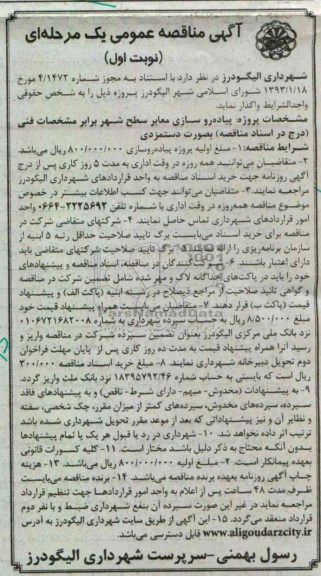 آگهی مناقصه عمومی یک مرحله‌ای
(نوبت اول)
شهرداری الیگودرز در نظر دارد با استناد به مجوز شماره ۴/۱۴۷۲ مورخ
۱۳۹۳/۱/۱۸ شورای اسلامی شهر الیگودرز پروژه ذیل را به شخص حقوقی
واجدالشرایط واگذار نماید.
مشخصات پروژه: پیاده‌رو سازی معابر سطح شهر برابر مشخصات فنی
(درج در اسناد مناقصه) بصورت دستمزدی
شرایط مناقصه: ۱- مبلغ اولیه پروژه پیاده‌روسازی ۸۰۰/۰۰۰/۰۰۰ ریال می‌باشد.
۲- متقاضیان می‌توانند همه روزه در وقت اداری به مدت ۵ روز کاری پس از درج
آگهی روزنامه جهت خرید اسناد مناقصه به واحد قراردادهای شهرداری الیگودرز
مراجعه نمایند. ۳- متقاضیان می‌توانند جهت کسب اطلاعات بیشتر در خصوص
موضوع مناقصه همه‌روزه در وقت اداری با شماره تلفن ۲۲۲۵۶۹۲-۰۶۶۴ واحد
امور قراردادهای شهرداری تماس حاصل نمایند. ۴- شرکتهای متقاضی شرکت در
مناقصه برای خرید اسناد می‌بایست برگ تایید صلاحیت حداقل رتبه ۵ ابنیه از
سازمان برنامه‌ریزی را ارائه برگ تایید صلاحیت شرکتهای متقاضی باید
دارای اعتبار باشند. ۶- شرکت‌کنندگان در مناقصه، اسناد مناقصه و پیشنهادهای
خود را باید در پاکت‌های جداگانه لاک و مهر شده شامل تضمین شرکت در مناقصه
و گواهی تائید صلاحیت از مراجع ذیصلاح در رشته ابنیه (پاکت الف) و پیشنهاد
قیمت (پاکت ب) قرار دهند. ۷- متقاضیان می‌بایست همراه پیشنهاد قیمت خود
مبلغ ۸/۵۰۰/۰۰۰ ریال به حساب سپرده شهرداری به شماره ۰۱۰۶۷۲۱۶۸۲۰۰۸
نزد بانک ملی مرکزی الیگودرز بعنوان تضمین سپرده شرکت در مناقصه واریز و
رسید آنرا همراه پیشنهاد قیمت به مدت ده روز کاری پس از پایان مهلت فراخوان
دوم تحویل دبیرخانه شهرداری نمایند. ۸- مبلغ خرید اسناد مناقصه ۳۰۰/۰۰۰
ریال است که بایستی به حساب شماره ۱۸۳۹۵۷۹۲/۴۶ نزد بانک ملت واریز گردد.
۹- به پیشنهادات (مخدوش- مبهم- دارای شرط- ناقص) و به پیشنهادهای فاقد
سپرده، سپرده‌های مخدوش، سپرده‌های کمتر از میزان مقرر، چک شخصی، سفته
و نظایر آن و نیز پیشنهاداتی که بعد از موعد مقرر تحویل شهرداری شده باشد
ترتیب اثر داده نخواهد شد. ۱۰- شهرداری در رد یا قبول هر یک یا تمام پیشنهادها
بدون آنکه محتاج به ذکر دلیل باشد مختار است. ۱۱- کلیه کسورات قانونی
بعهده پیمانکار است. ۱۲- مبلغ اولیه ۸۰۰/۰۰۰/۰۰۰ ریال می‌باشد. ۱۳- هزینه
چاپ آگهی روزنامه بعهده برنده مناقصه می‌باشد. ۱۴- برنده مناقصه می‌بایست
ظرف مدت ۴۸ ساعت پس از اعلام به واحد امور قراردادها جهت تنظیم قرارداد
مراجعه نماید در غیر این صورت سپرده آن بنفع شهرداری ضبط و با نفر دوم
قرارداد منعقد می‌گردد. ۱۵- این آگهی از طریق سایت شهرداری الیگودرز به آدرس
www.aligoudarzcity.ir قابل دسترسی می‌باشد.
رسول بهمنی-سرپرست شهرداری الیگودرز